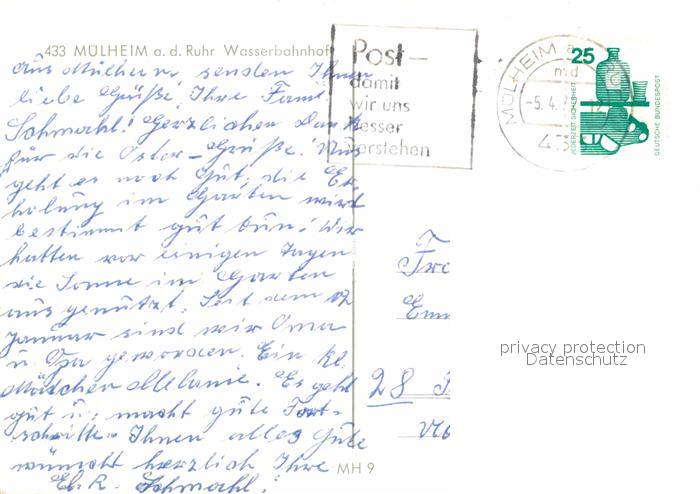 433 MÜLHEIM a. d. Ruhr Wasserbahnhof
Aus Mülheim, senden Ihnen
liebe Grüße, Ihre Fam.
Schmahl! Herzlichen Dank
für die Oster-Grüße. Uns
geht es noch gut, die Er-
holung im Garten wird
bestimmt gut tun! Wir
hatten vor einigen Tagen
die Sonne im Garten
aus genützt. Seit dem 12
Januar sind wir Oma
u. Opa geworden. Ein kl.
Mädchen Melanie. Es geht
gut u. macht gute Fort-
schritte. Ihnen alles Gute
wünscht herzlich Ihre
R. Schmahl!
MH 9
Post-
damit
wir uns
besser
verstehen
MÜLHEIM a
-5.4.
25
JEDERZEIT SICHERHEIT
DEUTSCHE BUNDESPOST
28
privacy protection
Datenschutz